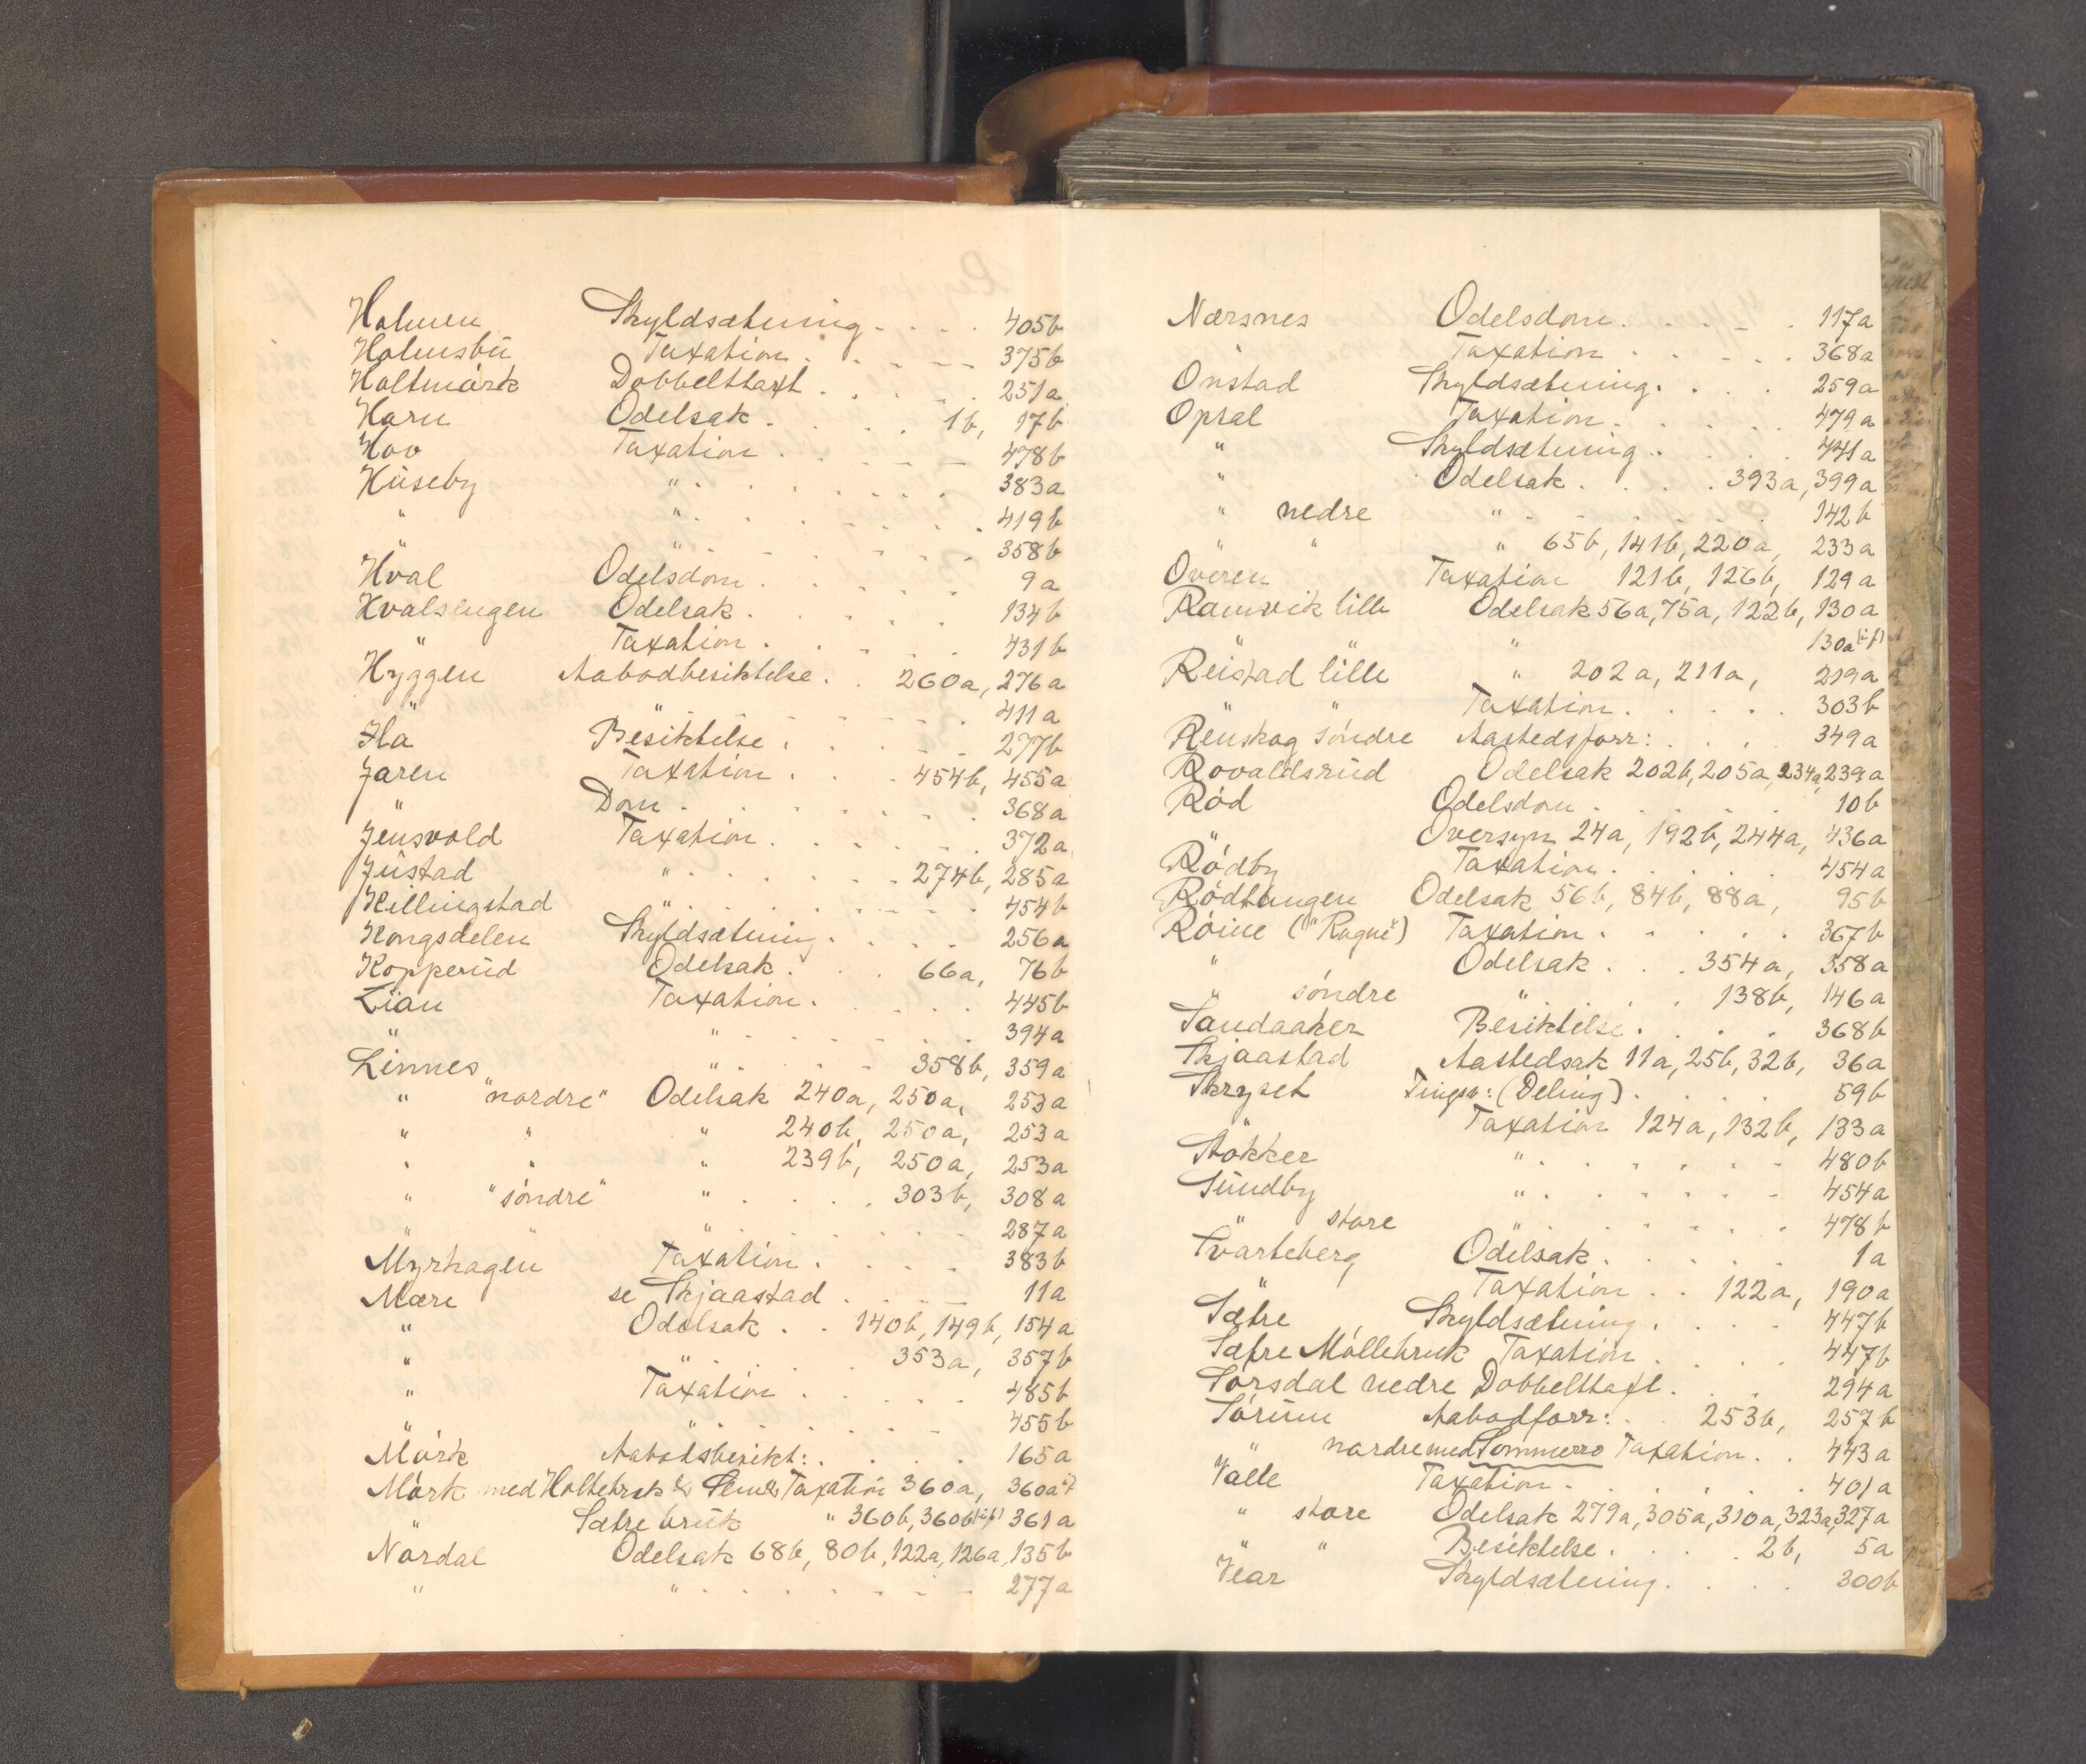 Holmen Skyldsætning . . . . 405b
Holmsbu Taxation . . . . 375b
Holtmark Dobbelttaxt . . . . 251a
Horn Odelsak . . . . 1b, 17b
Hov Taxation . . . . 478b
Huseby " . . . . 383a
" " . . . . 419b
" . . . . 358b
Hval Odelsdom . . . . 9a
Hvalsengen Odelsak . . . . 134b
" Taxation . . . . 431b
Hyggen Aabodbesiktelse . . 260a, 276a
" " . . . . 411a
Hå Besiktelse . . . . 277b
Jaren Taxation . . . 454b, 455a
" Dom . . . . 368a
Jensvold Taxation . . . . 372a
Justad " . . . . 274b, 285a
Killingstad " . . . . 454b
Kongsdelen Skyldsætning . . . . 256a
Kopperud Odelsak . . . 66a, 76b
Lian Taxation . . . . 445b
" " . . . . 394a
Linnes " . . . . 358b, 359a
" "nordre" Odelsak 240a, 250a, 253a
" " " 240b, 250a, 253a
" " " 239b, 250a, 253a
" "söndre" " . . . . 303b, 308a
" " " . . . . 287a
Myrhagen Taxation . . . . 383b
Mære se Skjaastad . . . . 11a
" Odelsak . . 140b, 149b, 154a
" " . . . . 353a, 357b
" Taxation . . . . 485b
" . . . . 455b
Mörk Aabodsbesikt: . . . . 165a
Mörk med Holtebrek & Taxation 360a, 360a
" Sætre bruk " 360b, 360b 361a
Nordal Odelsak 68b, 80b, 122a, 126a, 135b
" " . . . . 277a
Nærsnes Odelsdom . . . . 117a
Taxation . . . . 368a
Onstad Skyldsætning . . . 259a
Opsal Taxation . . . . 479a
" Skyldsætning . . . . 441a
" Odelsak . . . . 393a, 399a
" nedre " . . . . 142b
" " " 65b, 141b, 220a, 233a
Overen Taxation 121b, 126b, 129a
Ramvik lille Odelsak 56a, 75a, 122b, 130a
" 130a
Reistad lille " 202a, 211a, 219a
" " Taxation . . . . 303b
Renskog söndre Aastedsforr: . . . 349a
Rovaldsrud Odelsak 202b, 205a, 234a, 239a
Röd Odelsdom . . . . 10b
Oversyn 24a, 192b, 244a, 436a
Rödby Taxation . . . . 454a
Rödtangen Odelsak 56b, 84b, 88a, 95b
Röine ("Rogne") Taxation . . . . 367b
" Odelsak . . . 354a, 358a
" söndre " . . 138b, 146a
Sandaaker Besiktelse . . . . 368b
Skjaastad Aastedsak 11a, 25b, 32b, 36a
Skryset Tingsv: (Deling) . . . . 59b
Taxation 124a, 132b, 133a
Stokker " . . . . 480b
Sundby " . . . . 454a
" store " . . . . 478b
Svarteberg Odelsak . . . . 1a
" Taxation . . 122a, 190a
Sætre Skyldsætning . . . . 447b
Sætre Möllebruk Taxation . . . . 447b
Sörsdal nedre Dobbelttaxt . . . 294a
Sörum Aabodforr: . . 253b, 257b
" nordre med Sommerro Taxation . . 443a
Valle Taxation . . . . 401a
" store Odelsak 279a, 305a, 310a, 323a, 327a
" " Besiktelse . . . . 2b, 5a
Vear Skyldsætning . . . . 300b